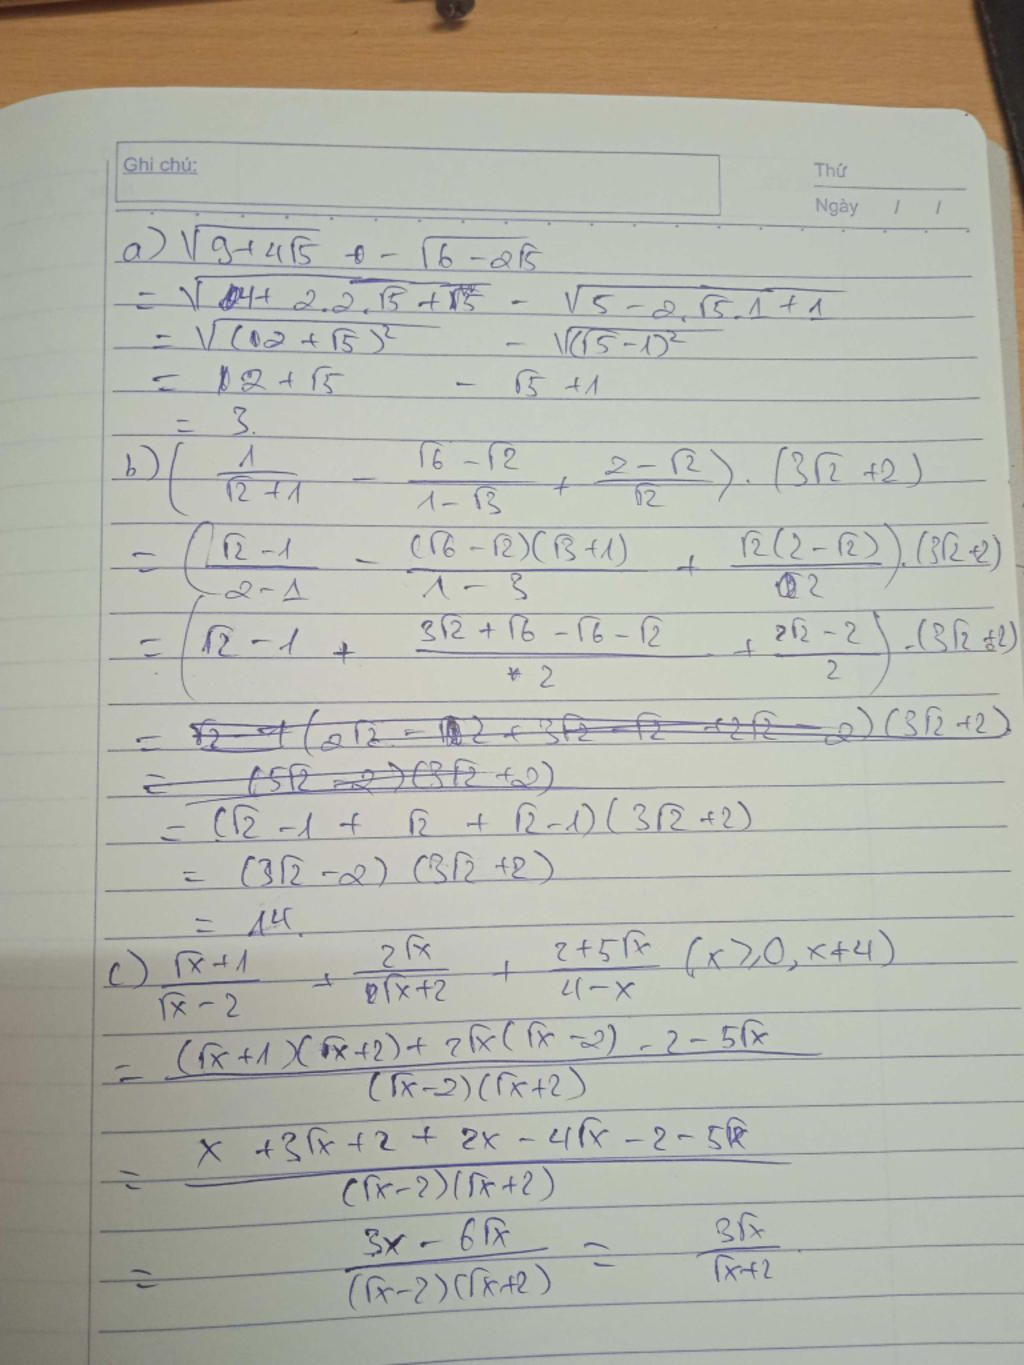 Ghi chú:
Thứ
Ngày / /
a) √(9+4√5) - √(6-2√5)
= √(4+ 2.2.√5+5) - √(5-2.√5.1+1)
= √((2+√5)²) - √((√5-1)²)
= 2+√5 - √5 +1
= 3.
b) (1/(√2+1) - (√6-√2)/(1-√3) + (2-√2)/√2) . (3√2+2)
= ((√2-1)/(2-1) - (√6-√2)(√3+1)/(1-3) + √2(2-√2)/2).(3√2+2)
= (√2-1 + (3√2+√6-√6-√2)/2 + (2√2-2)/2) .(3√2+2)
= (3√2+2)
= (5√2-2)(3√2+2)
= (√2-1+ √2 + √2-1)(3√2+2)
= (3√2-2) (3√2+2)
= 14.
c) (√x+1)/(√x-2) + 2√x/(√x+2) + (2+5√x)/(4-x) (x≥0, x≠4)
= ((√x+1)(√x+2)+2√x(√x-2)-2-5√x)/((√x-2)(√x+2))
= (x+3√x+2+2x-4√x-2-5√x)/((√x-2)(√x+2))
= (3x-6√x)/((√x-2)(√x+2)) = 3√x/(√x+2)